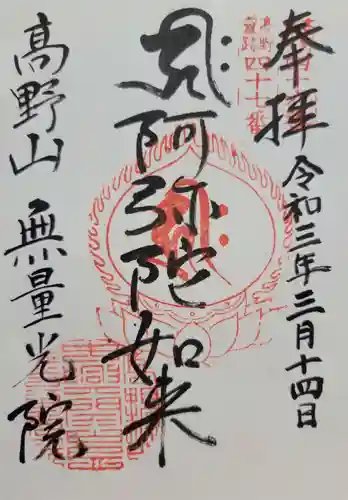 奉拝
令和三年三月十四日
高野
霊場
四十七番
阿弥陀如来
高野山 無量光院